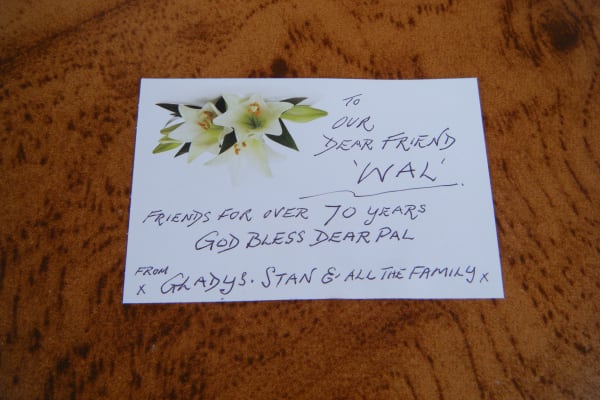 TO
OUR
DEAR FRIEND
'WAL'.
FRIENDS FOR OVER 70 YEARS
GOD BLESS DEAR PAL
FROM
x GLADYS. STAN & ALL THE FAMILY x